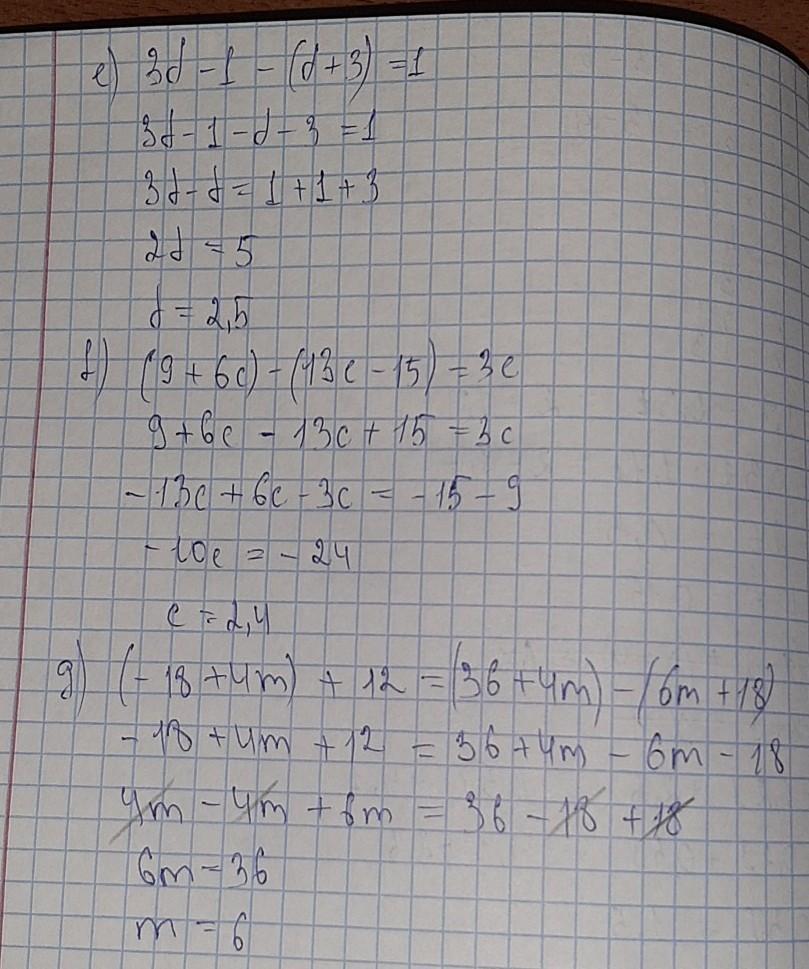 e) 3d - 1 - (d + 3) = 1
3d - 1 - d - 3 = 1
3d - d = 1 + 1 + 3
2d = 5
d = 2,5
f) (9 + 6c) - (13c - 15) = 3c
9 + 6c - 13c + 15 = 3c
- 13c + 6c - 3c = - 15 - 9
- 10c = - 24
c = 2,4
g) (- 18 + 4m) + 12 = (36 + 4m) - (6m + 18)
- 18 + 4m + 12 = 36 + 4m - 6m - 18
4m - 4m + 6m = 36 - 18 + 18
6m = 36
m = 6